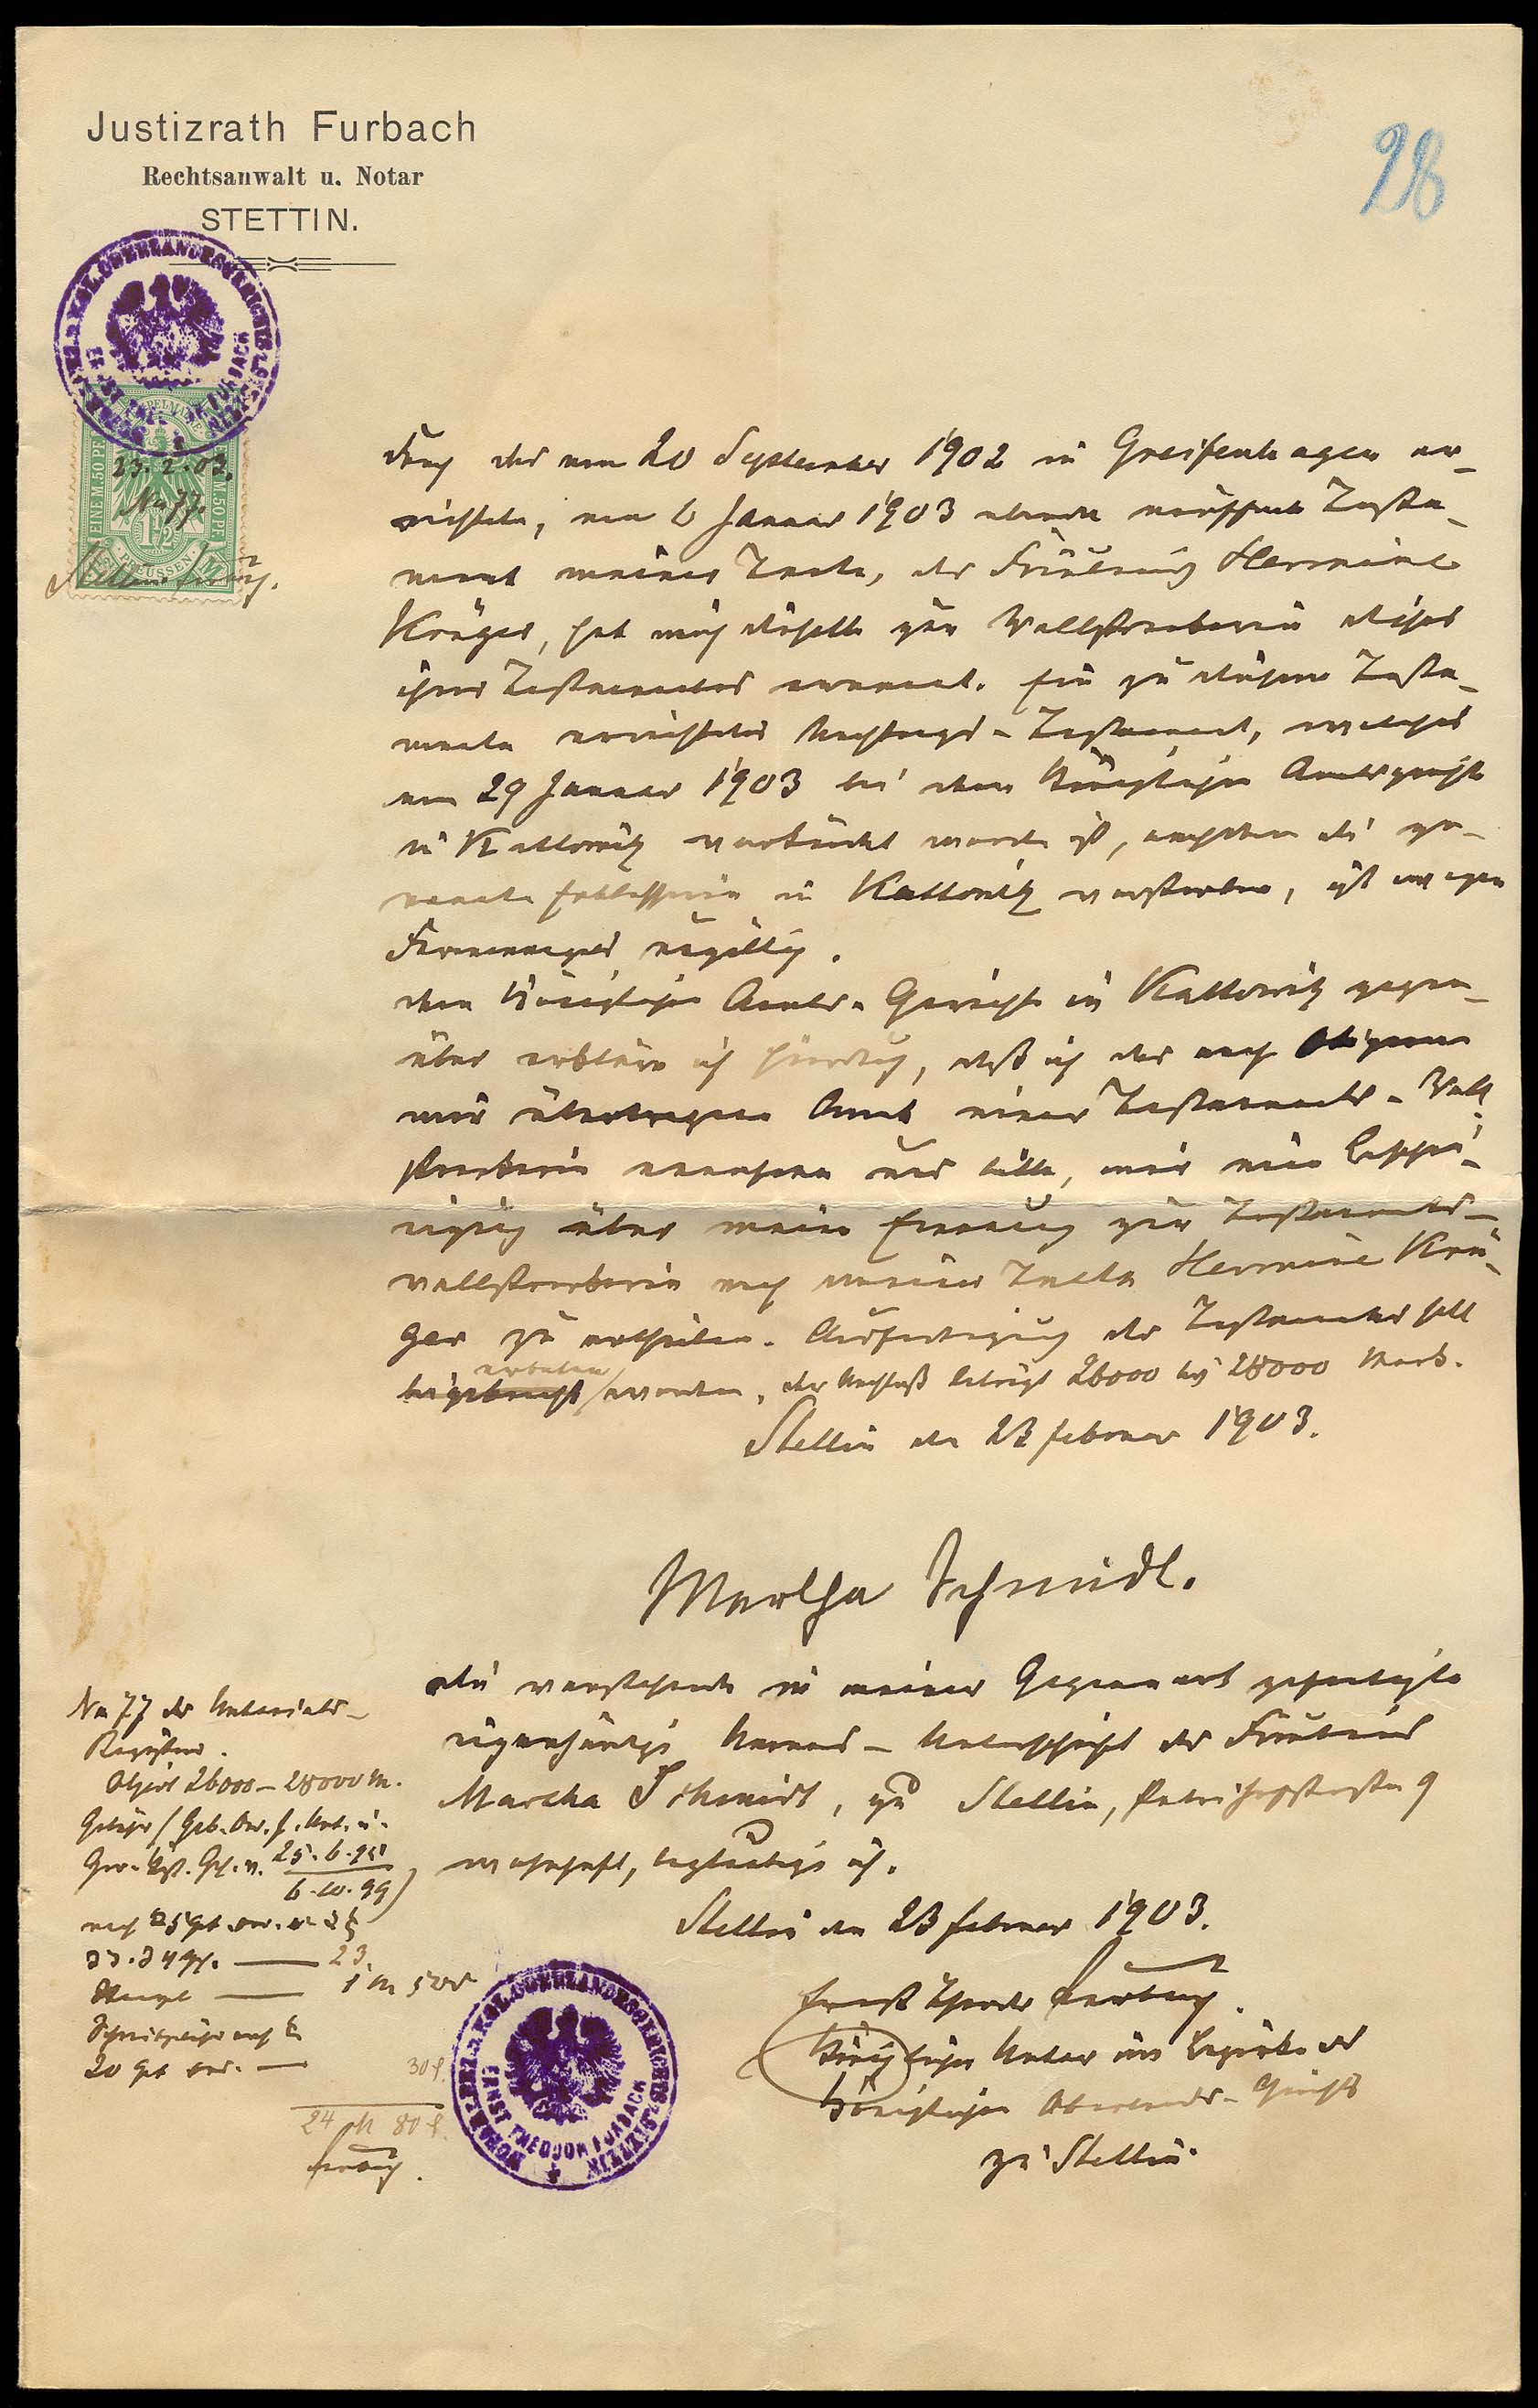 Justizrath Furbach
Rechtsanwalt u. Notar
STETTIN.
28
NOTAR I. BEZ. D. KGL. OBERLANDESGERICHTS Z. STETTIN
ERNST THEODOR FURBACH
STEMPELMARKE
EINE M. 50 PF.
M. 50 PF.
23.2.03.
No 77.
1½
PREUSSEN
Stettin Furbach.
Durch das am 20 September 1902 in Greifenhagen er-
richtete, am 6 Januar 1903 ebenda eröffnete Testa-
ment meiner Tante, des Fräulein Hermine
Krüger, hat mich dieselbe zur Vollstreckerin dieses
ihres Testamentes ernannt. Ein zu diesem Testa-
mente errichtetes Nachtrags-Testament, welches
am 29 Januar 1903 bei dem Königlichen Amtsgericht
in Kattowitz verkündet worden ist, nachdem die ge-
nannte Erblasserin in Kattowitz verstorben, ist wegen
Formmangels ungültig.
Dem Königlichen Amts-Gericht in Kattowitz gegen-
über erkläre ich hierdurch, daß ich das nach Obigem
mir übertragene Amt einer Testaments-Voll-
streckerin annehme und bitte, mir eine Beschei-
nigung über meine Ernennung zur Testaments-
vollstreckerin nach meiner Tante Hermine Krü-
ger zu ertheilen. Ausfertigung des Testamentes soll
erbeten
werden, der Nachlaß beträgt 26000 bis 28000 Mark.
Stettin den 23 Februar 1903.
Martha Schmidt.
Die vorstehende in meiner Gegenwart gefertigte
eigenhändige Namens-Unterschrift des Fräuleins
Martha Schmidt, zu Stettin, Petrihofstraße 9
wohnhaft, beglaubige ich.
Stettin den 23 Februar 1903.
Ernst Theodor Furbach.
Königlicher Notar im Bezirke des
Königlichen Oberlandes-Gerichts
zu Stettin
No 77 des Notariats-
Registers.
Objekt 26000 - 28000 M.
Gebühr (Geb. Ord. f. Not. u.
25.6.95
6.10.99)
23.
Stempel 1 M 50
Schreibgebühr nach §
20 Geb. Ord. 30 f.
24 M 80 f.
Furbach.
NOTAR I. BEZ. D. KGL. OBERLANDESGERICHTS Z. STETTIN
ERNST THEODOR FURBACH